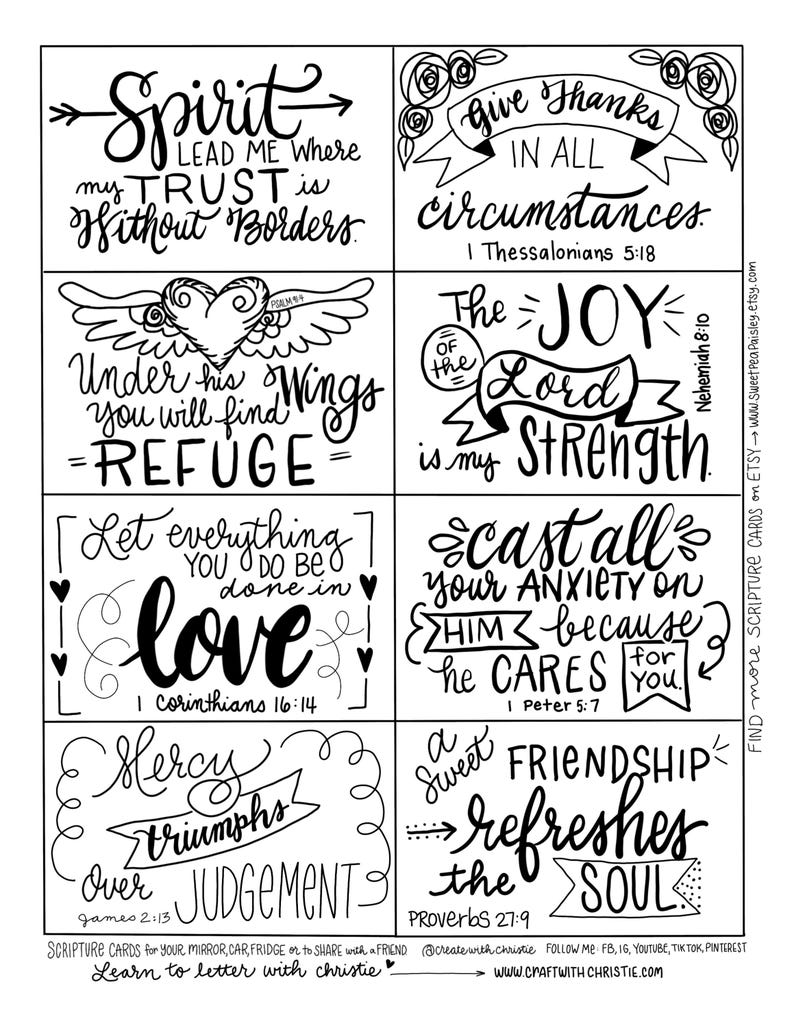 Spirit
LEAD ME Where
my TRUST is
Without Borders.
Give Thanks
IN ALL
circumstances.
1 Thessalonians 5:18
PSALM 91:4
Under his Wings
you will find
REFUGE
The JOY
OF the
Lord
is my Strength.
Nehemiah 8:10
Let everything
YOU DO BE
done in
love
1 Corinthians 16:14
cast all
your ANXIETY on
HIM because
he CARES for YOU.
1 Peter 5:7
Mercy
triumphs
Over JUDGEMENT
James 2:13
a Sweet FRIENDSHIP
refreshes
the SOUL.
Proverbs 27:9
FIND more SCRIPTURE CARDS on ETSY → www.sweetpeapaisley.etsy.com
SCRIPTURE CARDS for YOUR MIRROR, CAR, FRIDGE or to SHARE with a FRIEND @createwithchristie FOLLOW ME: FB, IG, YOUTUBE, TIKTOK, PINTEREST
Learn to letter with christie → www.CRAFTWITHCHRISTIE.COM